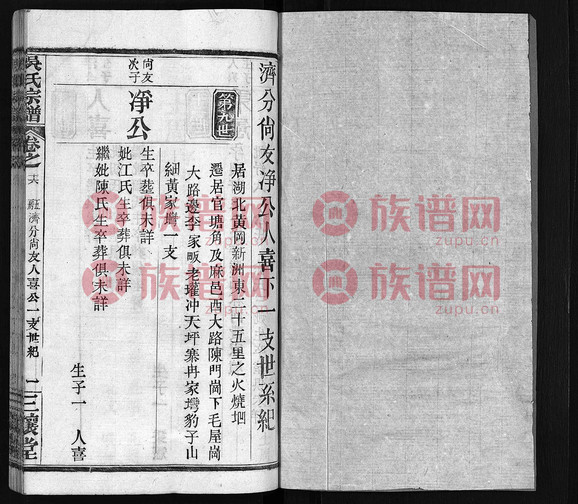 濟分尙友淨公人喜下一支世系紀
居湖北黃岡新洲東二十五里之火燒坦
遷居官塘角及麻邑西大路陳門崗下毛屋崗
大路邊李家畈老㘰冲天坪寨冉家塆豹子山
細黃家塆一支
第九世
尙友
次子
淨公
生卒葬俱未詳
妣江氏生卒葬俱未詳
繼妣陳氏生卒葬俱未詳
生子一 人喜
吳氏宗譜
卷之
六
經濟分尙友人喜公一支世紀
一
三讓堂
族谱网
zupu.cn
族谱网
zupu.cn
族谱网
zupu.cn
族谱网
zupu.cn
族谱网
zupu.cn
族谱网
zupu.cn